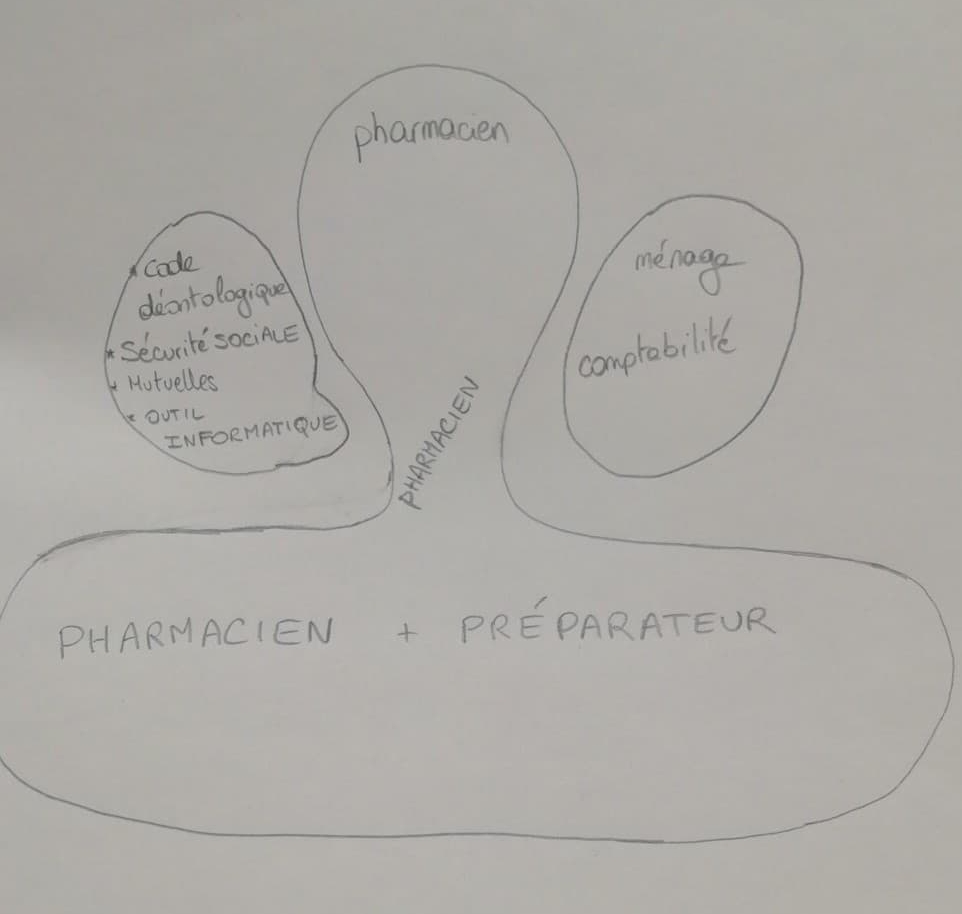 pharmacien
* Code
déontologique
* Sécurité SOCIALE
* Mutuelles
* OUTIL
INFORMATIQUE
ménage
comptabilité
PHARMACIEN
PHARMACIEN + PRÉPARATEUR